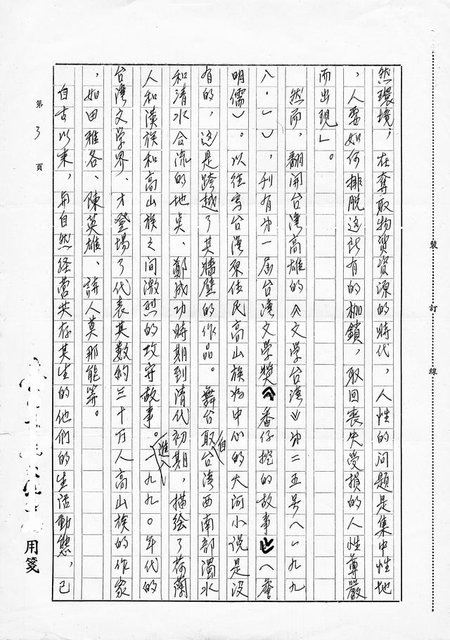 然環境，在奪取物質資源的時代，人性的問題是集中性地
，人要如何排脫這所有的枷鎖，取回喪失受損的人性尊嚴
而出現」。
然而，翻開台灣高雄的《文學台灣》第二五号（一九九
八・一），刊有第一届台灣文學獎《番仔挖的故事》（詹
明儒）。以往寫台灣原住民高山族為中心的大河小說是没
有的，這是跨越了其牆壁的作品。舞台取自台灣西南部濁水
和清水合流的地点，鄭成功時期到清代初期，描绘了荷蘭
人和漢族和高山族之间激烈的攻守故事。進入一九九〇年代的
台灣文学界，才登場了代表其数約三十万人高山族的作家
，如田雅各、陳英雄、詩人莫那能等。
自古以来，与自然经营共存共生的他们的生活動態，已
第3頁
裝訂線
用箋